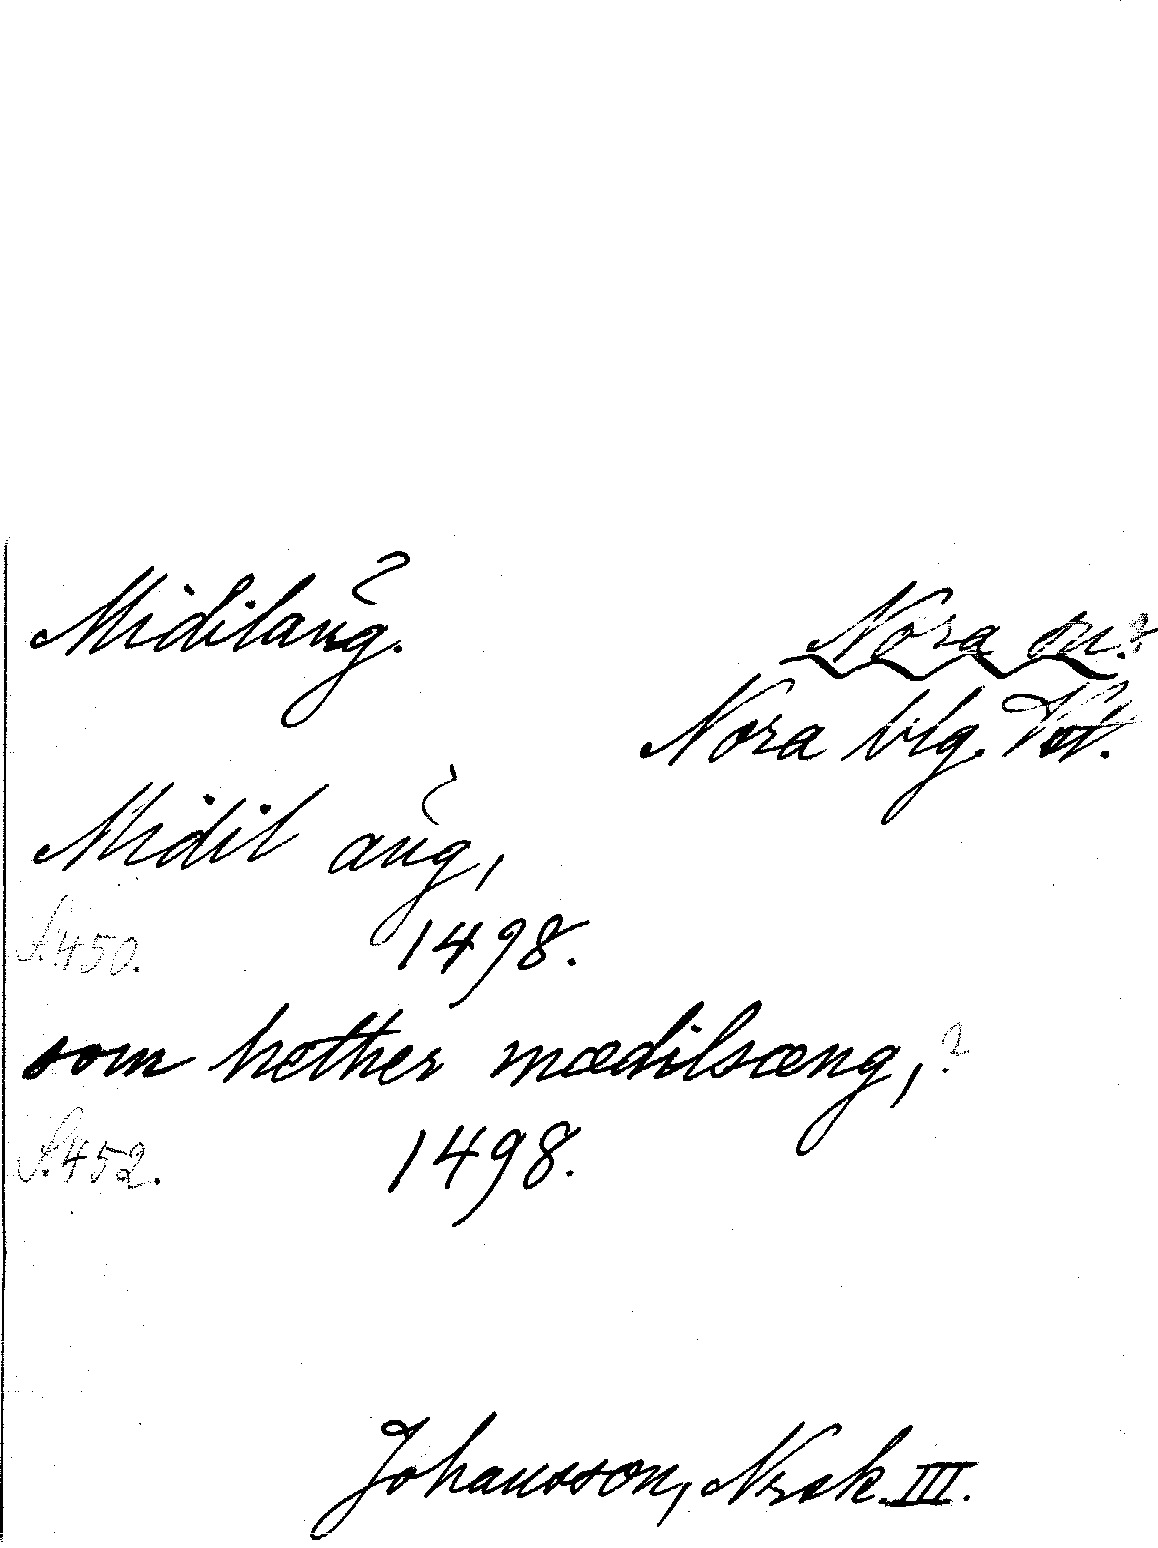 Midilang.
Nora sn.?
Nora blg. Vst.
Midil ang,
S. 450. 1498.
som hether mædilsæng,?
S. 452. 1498.
Johansson, Nrsk. III.